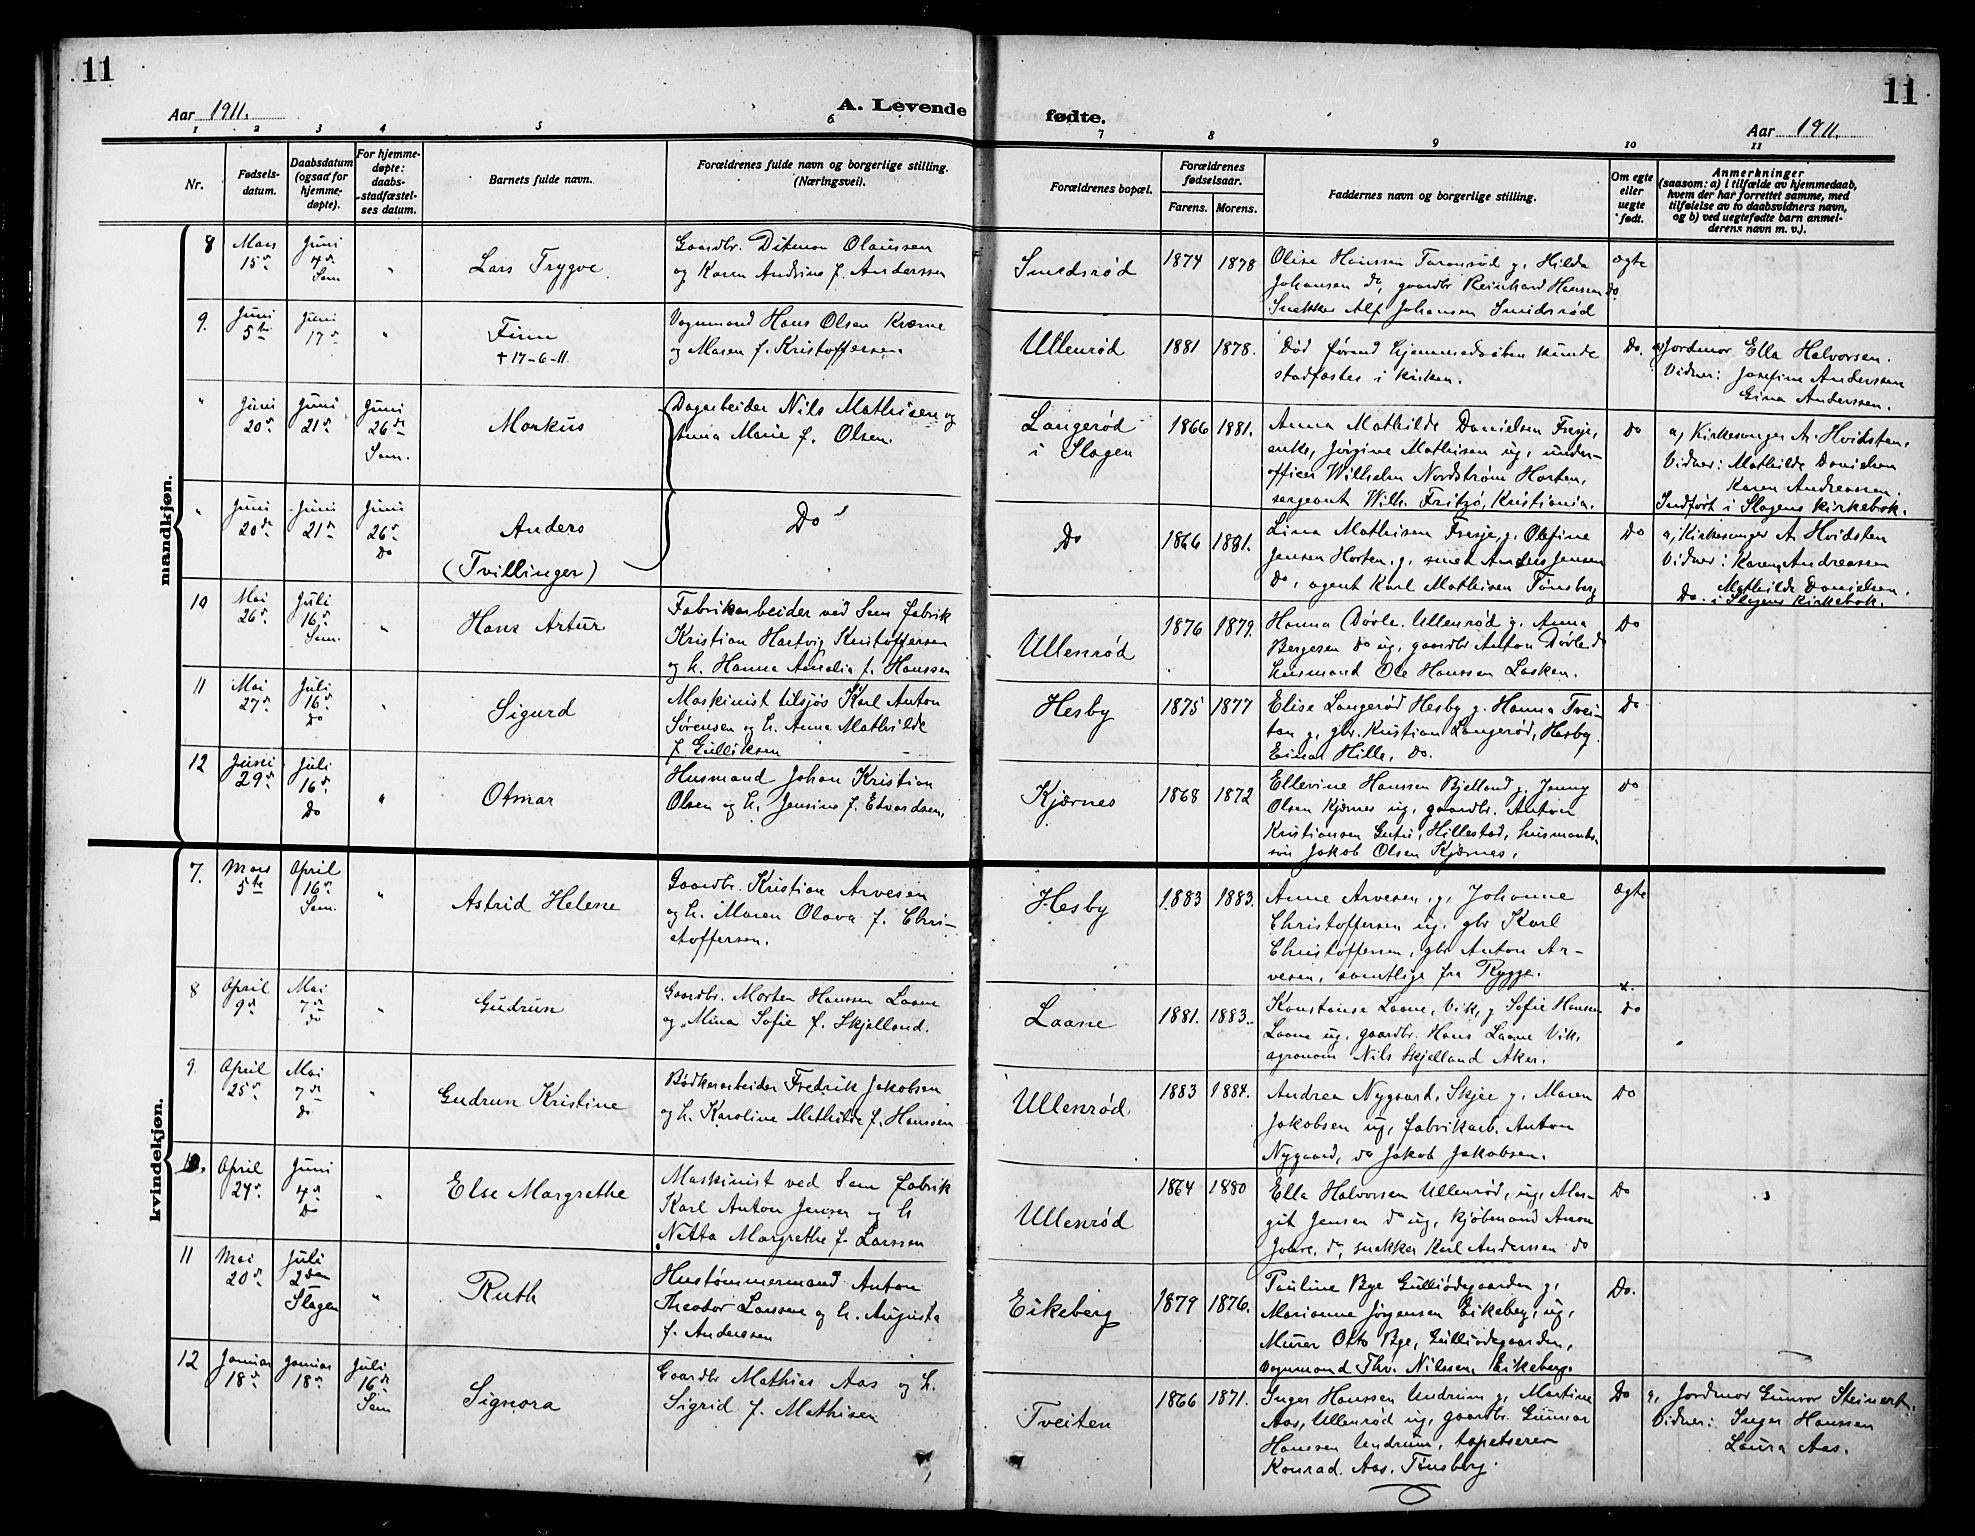 11
11
Aar 1911.
A. Levende
fødte.
Aar 1911.
1 2 3 4 5 6 7 8 9 10 11
Nr.
Fødsels-
datum.
Daabsdatum
(ogsaa for
hjemme-
døpte).
For hjemme-
døpte:
daabs-
stadfæstel-
ses datum.
Barnets fulde navn.
Forældrenes fulde navn og borgerlige stilling.
(Næringsvei).
Forældrenes bopæl.
Forældrenes
fødselsaar.
Farens. Morens.
Faddernes navn og borgerlige stilling.
Om egte
eller
uegte
født.
Anmerkninger
(saasom: a) i tilfælde av hjemmedaab,
hvem der har forrettet samme, med
tilføielse av to daabsvidners navn,
og b) ved uegtefødte barn anmel-
derens navn m. v.).
mandkjøn.
8
Mars
15de
Juni
4de
Sem
"
Lars Trygve.
Gaardbr. Ditman Olaussen
og Karen Andrine f. Anderssen
Smedsrød
1874 1878
Olise Hanssen g. Hilda
Johansen do, gaardbr Reinhard Hansen do
Snekker Alf Johansen Smidsrød
ægte
9.
Juni
5te
Juni
17de
"
Finn
† 17-6-11.
Vognmand Hans Olsen Kværne
og Maren f. Kristoffersen.
Ullenrød
1881 1878.
Død førend hjemmedaaben kunde
stadfæstes i kirken.
Do.
a) Jordmor Ella Halvorsen.
Vidner: Josefine Anderssen
Gina Anderssen.
"
Juni
20de
Juni
21de
Juni
26de
Sem.
Markus
Dagarbeider Nils Mathisen og
Anna Marie f. Olsen.
Langerød
i Slagen
1866 1881.
Anna Mathilde Danielsen Fresje,
enke, Jørgine Mathisen ug, under-
officer Wilhelm Nordstrøm Horten,
sergeant Wilh. Fritzø, Kristiania.
Do
a, Kirkesanger A. Hvidsten,
Vidner: Mathilde Danielsen
Karen Andreassen.
Indført i Slagens kirkebok.
"
Juni
20de
Juni
21de
Juni
26de
Do
Anders
(Tvillinger)
Do
Do
1866 1881.
Lina Mathisen Fresje, g. Olefine
Jensen Horten, g, smed Anders Jensen
Do, agent Karl Mathisen Tønsberg
Do
a, Kirkesanger A Hvidsten
Vidner: Karen Andreassen
Mathilde Danielsen.
Do. i Slagens Kirkebok.
10
Mai
26de
Juli
16de
Sem.
"
Hans Artur
Fabrikarbeider ved Sem fabrik
Kristian Hartvig Kristoffersen
og h. Hanna Amalia f. Hanssen
Ullenrød
1876 1879.
Hanna Døvle. Ullenrød g. Anna
Bergesen do ug, gaardbr Anton Døvle do
husmand Ole Hanssen Lasken.
Do
11
Mai
27de
Juli
16de
Do
"
Sigurd
Maskinist tilsjøs Karl Anton
Sørensen og h. Anna Mathilde
f. Gulliksen
Hesby
1875 1877
Elise Langerød Hesby g. Hanna Tvei-
tan g, gbr. Kristian Langerød, Hesby.
Einar Hille, do.
Do
12
Juni
29de
Juli
16de
Do
"
Otmar
Husmand Johan Kristian
Olsen og h. Jensine f. Edvardsen.
Kjærnes
1868 1872
Ellevine Hanssen Bjelland g, Jenny
Olsen Kjærnes ug, gaardbr. Anton
Kristiansen, Hillestad, husmands-
søn Jakob Olsen Kjærnes.
Do
kvindekjøn.
7.
Mars
5te
April
16de
Sem.
"
Astrid Helene
Gaardbr. Kristian Arvesen
og h. Maren Olava f. Chri-
stoffersen.
Hesby
1883 1883.
Anne Arvesen g, Johanne
Christoffersen ug. gbr Karl
Christoffersen, gbr Anton Ar-
vesen, samtlige fra Rygge.
ægte
8
April
9de
Mai
7de
do
"
Gudrun
Gaardbr. Morten Hanssen Laane
og Mina Sofie f. Skjelland.
Laane
1881. 1883.
Konstanse Laane, Vik, g Sofie Hansen
Laane ug, gaardbr. Hans Laane Vik.
agronom Nils Skjelland Aker.
x.
do
9.
April
25de
Mai
7de
Do
"
Gudrun Kristine
Bødkerarbeider Fredrik Jakobsen
og h. Karoline Mathilde f. Hanssen
Ullenrød.
1883 1884.
Andrea Nygaard, Skjee g, Maren
Jakobsen ug, fabrikarb. Anton
Nygaard, do Jakob Jakobsen.
Do
10.
April
24de
Juni
4de
Do
"
Else Margrethe
Maskinist ved Sem fabrik
Karl Anton Jensen og h
Netta Margrethe f. Larssen
Ullenrød
1864 1880
Ella Halvorsen Ullenrød, ug, Mar-
git Jensen do ug, kjøbmand
do, snekker Karl Anderssen do
Do
11
Mai
20de
Juli
2den
Slagen
"
Ruth
Hustømmermand Anton
Theodor Larsen og h. Augusta
f. Anderssen
Eikeberg
1879 1876.
Pauline Bye g,
Marianne Jørgensen Eikeberg, ug,
Murer Otto Bye,
Vognmand Thv. Nilssen, Eikeberg.
Do.
12
Januar
18de
Januar
18de
Juli
16de
Sem
Signora
Gaardbr Mathias Aas og h.
Sigrid f. Mathisen
Tveiten
1866 1871.
Inger Hanssen Undrum g, Martine
Aas, Ullenrød ug, gaardbr. Gunnar
Hanssen Undrum, tapetserer
Konrad. Aas. Tønsberg.
Do
a, Jordmor Gunvor Steinert.
Vidner: Inger Hanssen
Laura Aas.